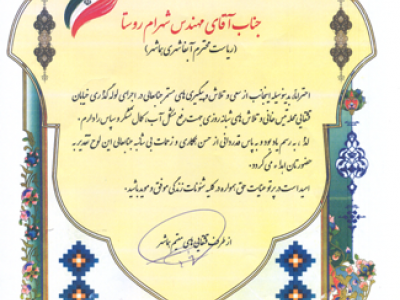 جناب آقای مهندس شهرام روستا
(ریاست محترم آبفا شهری بهاشهر)
احتراماً، بدینوسیله اینجانب از سعی و تلاش و پیگیری های مستمر جنابعالی در اجرای لوله گذاری خیابان
قشقایی محله میس خانی و تلاش های شبانه روزی جهت رفع مشکل آب، کمال تشکر و سپاس را دارم.
لذا، به رسم یادبود و به پاس قدردانی از حسن همکاری و زحمات بی شائبه جنابعالی این لوح تقدیر به
حضورتان اهداء می گردد.
امید است در پرتو عنایت حق همواره در کلیه شئونات زندگی موفق و موید باشید.
از طرف قشقایی های مقیم بهاشهر